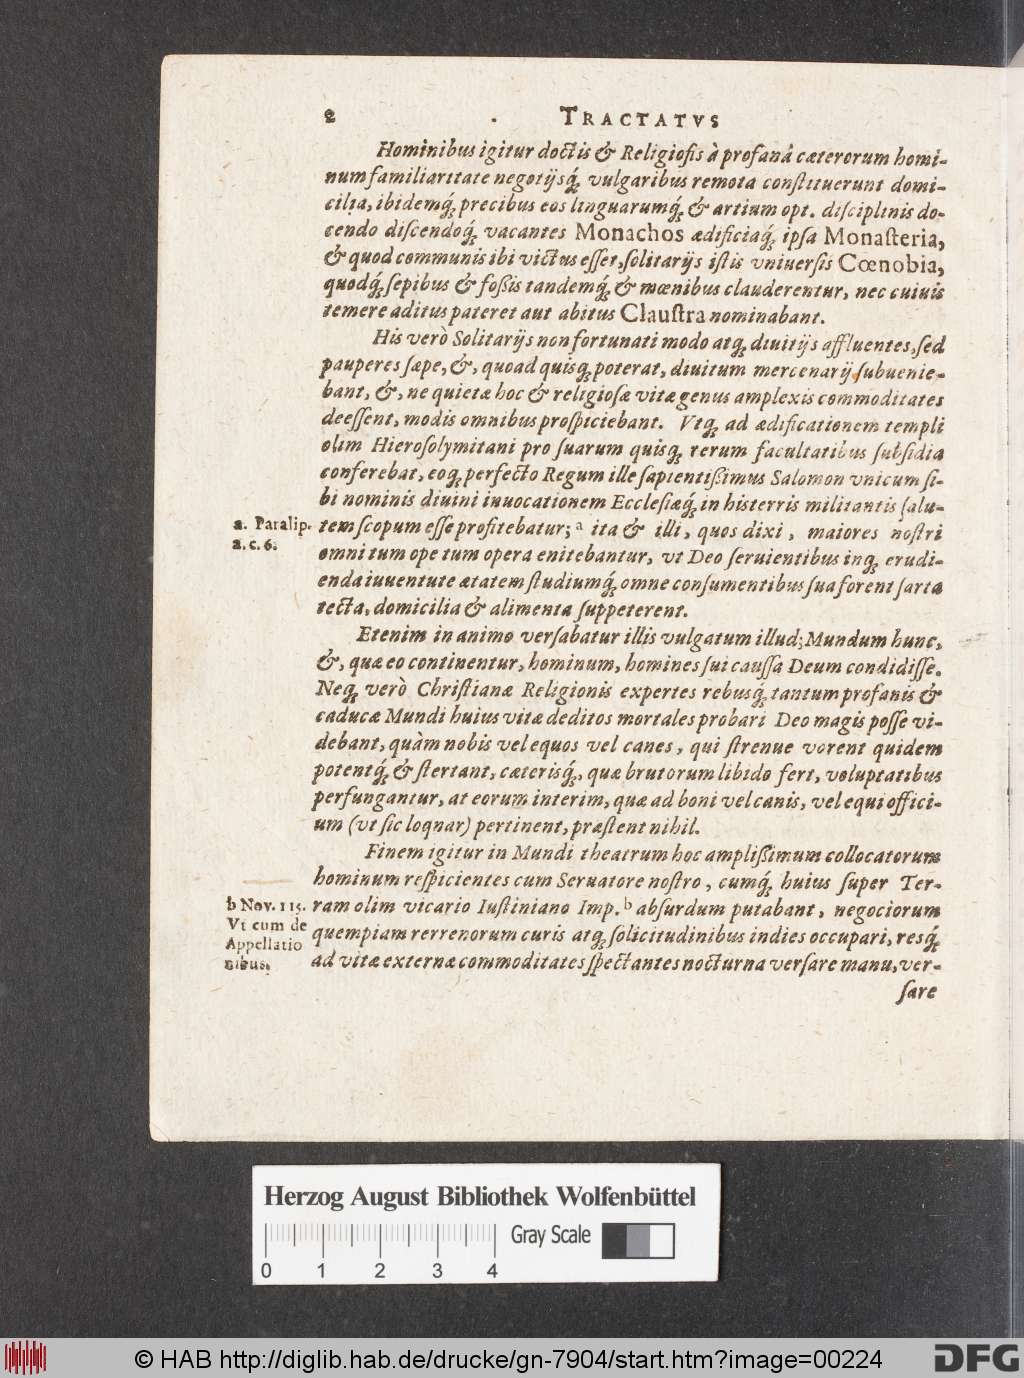 2 TRACTATVS
Hominibus igitur doctis & Religiosis à profanâ cæterorum homi-
num familiaritate negotijsq́; vulgaribus remota constituerunt domi-
cilia, ibidemq́; precibus eos linguarumq́; & artium opt. disciplinis do-
cendo discendoq́; vacantes Monachos ædificiaq́; ipsa Monasteria,
& quod communis ibi victus esset, solitarijs istis vniuersis Cœnobia,
quodq́; sepibus & fossis tandemq́; & mœnibus clauderentur, nec cuiuis
temere aditus pateret aut abitus Claustra nominabant.
His verò Solitarijs non fortunati modo atq; diuitijs affluentes, sed
pauperes sæpe, &, quoad quisq; poterat, diuitum mercenarij subuenie-
bant, &, ne quietæ hoc & religiosæ vitæ genus amplexis commoditates
deessent, modis omnibus prospiciebant. Vtq; ad ædificationem templi
olim Hierosolymitani pro suarum quisq; rerum facultatibus subsidia
conferebat, eoq; perfecto Regum ille sapientissimus Salomon vnicum si-
bi nominis diuini inuocationem Ecclesiæq́; in histerris militantis salu-
a. Paralip. tem scopum esse profitebatur; a ita & illi, quos dixi, maiores nostri
2. c. 6. omni tum ope tum opera enitebantur, vt Deo seruientibus inq; erudi-
enda iuuentute ætatem studiumq́; omne consumentibus sua forent sarta
tecta, domicilia & alimenta suppeterent.
Etenim in animo versabatur illis vulgatum illud; Mundum hunc,
&, quæ eo continentur, hominum, homines sui caussa Deum condidisse.
Neq; verò Christianæ Religionis expertes rebusq́; tantum profanis &
caducæ Mundi huius vitæ deditos mortales probari Deo magis posse vi-
debant, quàm nobis vel equos vel canes, qui strenue vorent quidem
potentq́; & stertant, cæterisq́;, quæ brutorum libido fert, voluptatibus
perfungantur, at eorum interim, quæ ad boni vel canis, vel equi offici-
um (vt sic loqnar) pertinent, præstent nihil.
Finem igitur in Mundi theatrum hoc amplissimum collocatorum
hominum respicientes cum Seruatore nostro, cumq́; huius super Ter-
b Nov. 115. ram olim vicario Iustiniano Imp. b absurdum putabant, negociorum
Vt cum de quempiam rerrenorum curis atq; solicitudinibus indies occupari, resq́;
Appellatio
nibus. ad vitæ externæ commoditates spectantes nocturna versare manu, ver-
sare
Herzog August Bibliothek Wolfenbüttel
Gray Scale
0 1 2 3 4
© HAB http://diglib.hab.de/drucke/gn-7904/start.htm?image=00224
DFG